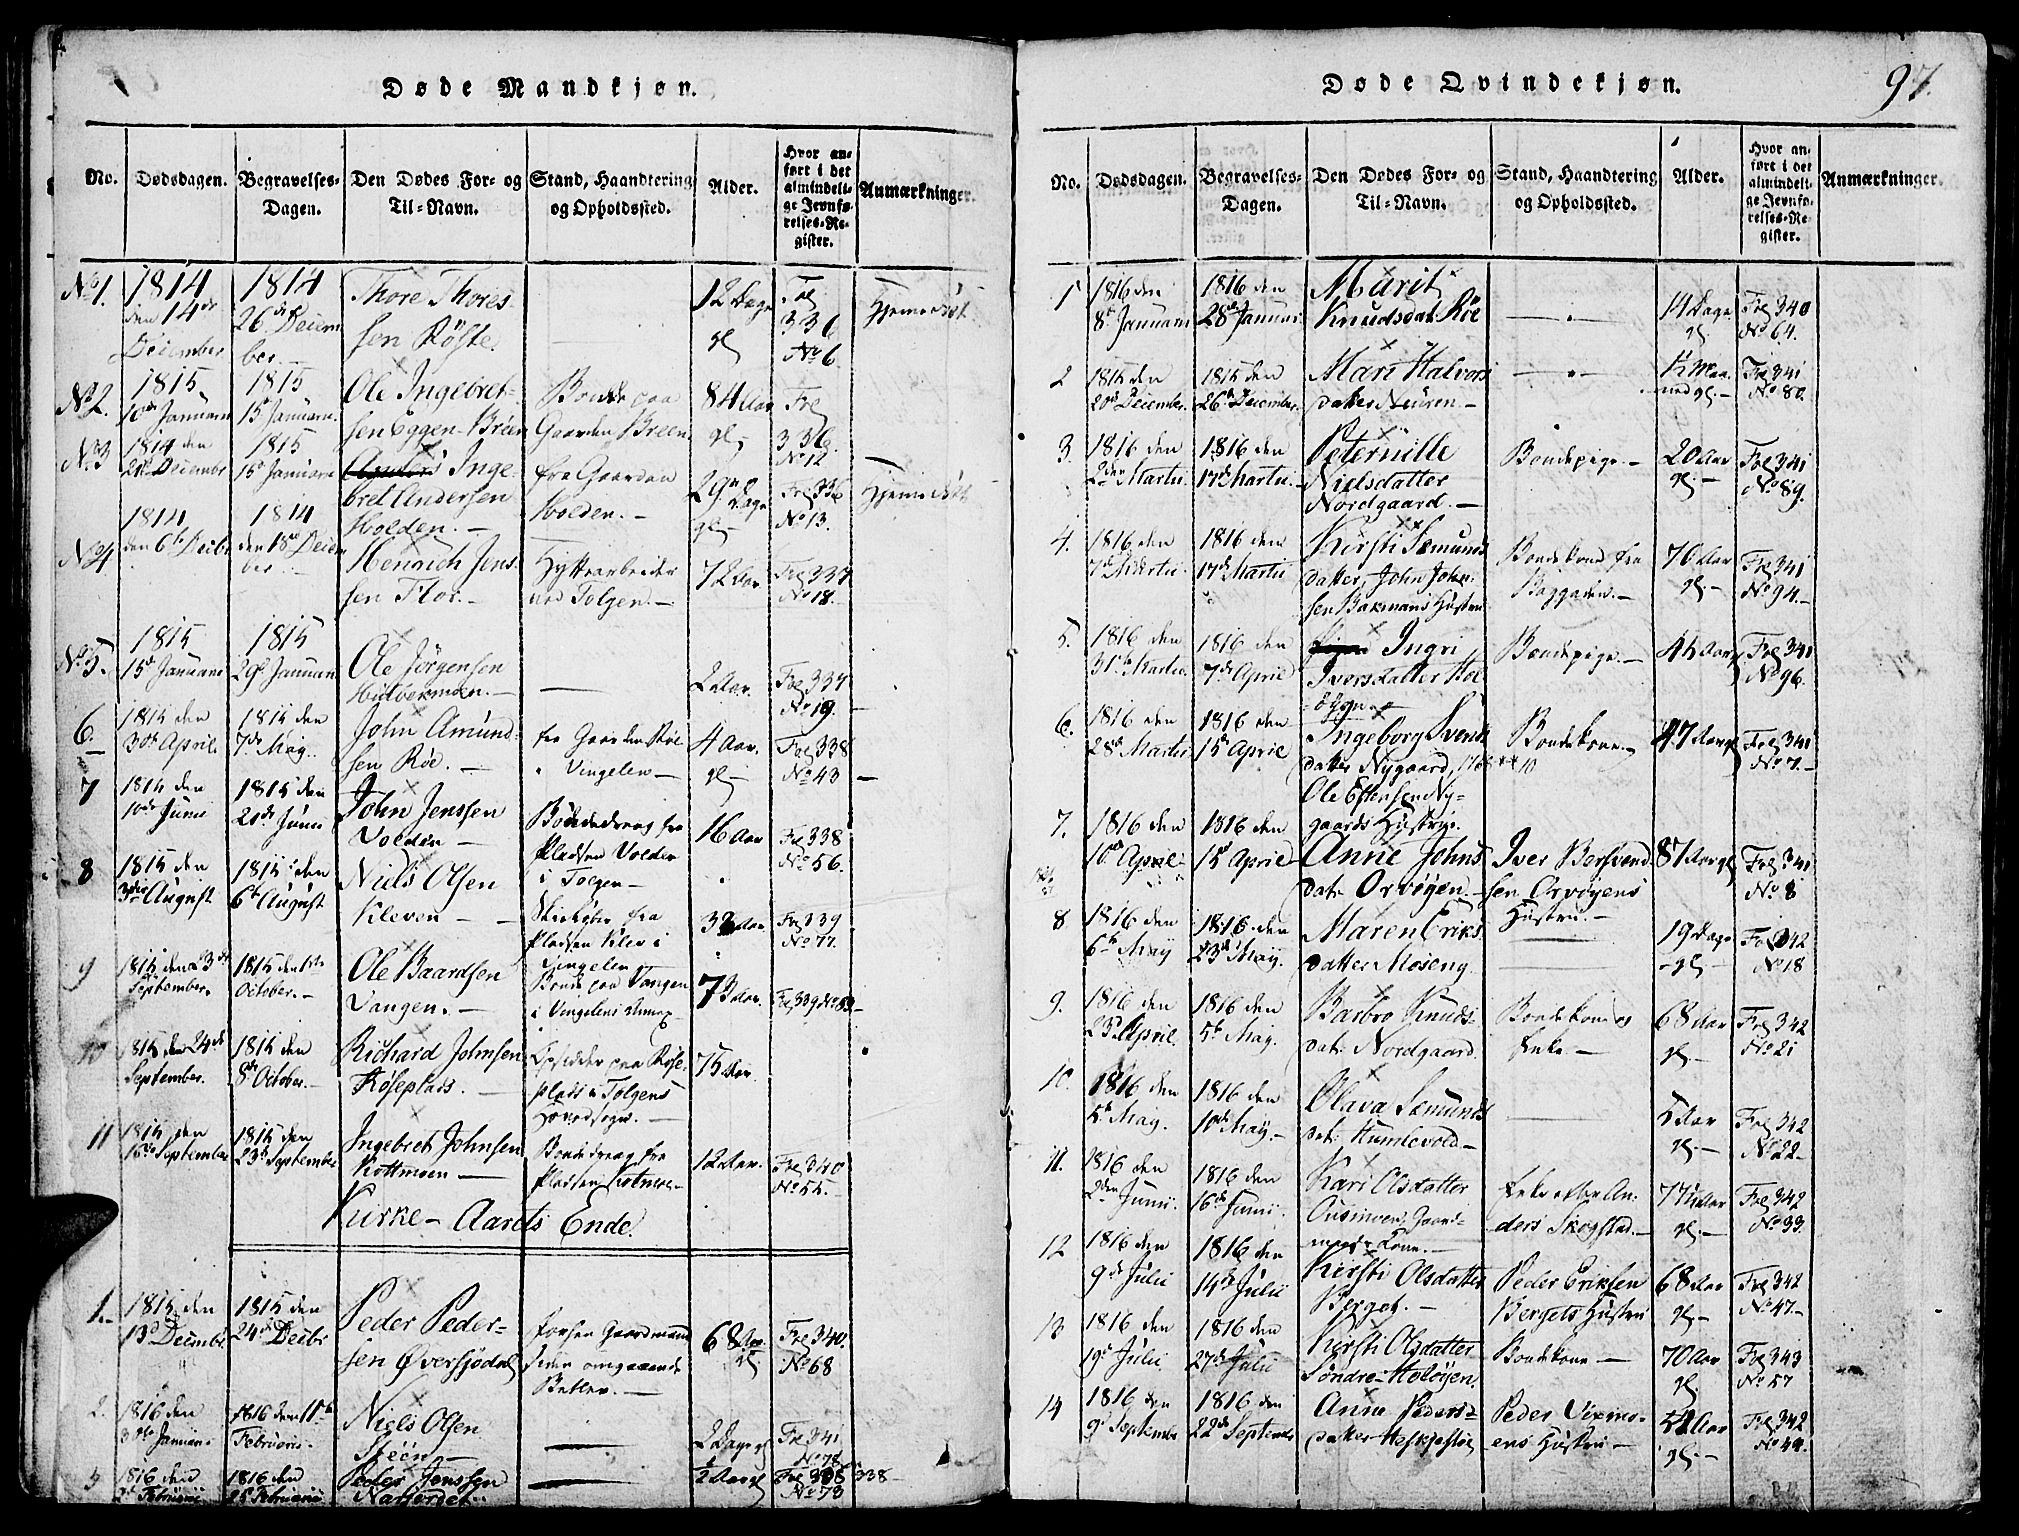 Døde Mandkjøn.
No.
Dødsdagen.
Begravelses-
Dagen.
Den Dødes For- og
Til-Navn.
Stand, Haandtering
og Opholdssted.
Alder.
Hvor an-
ført i det
almindeli-
ge Jevnfø-
relses-Re-
gister.
Anmærkninger.
No 1.
1814
den 14de
December
1814
26de Decem
ber.
Thore Thores-
sen Röste.
12 Dage
gl
Fol
336
No 6
Hjemmedöbt
No 2.
1815
10de Januarii
1815
15de Januarii
Ole Ingebret-
sen Eggen-Bréen
Bonde paa
Gaarden Breen
84 Aar
gl.
Fol
336
No 12
No 3
1814 den
21de Decembr
1815
15de Januarii
Inge
bret Andersen
Volden.
fra Gaarden
Volden.
29
Dage
gl
Fol 336
No 13.
Hjemmedöbt
No 4
1814
den 6te Decbr
1814
den 18de Decem
ber.
Henrich Jens
sen Flor.
Hyttearbeider
ved Tolgen.
72 Aar
Fol 337
No 18.
No 5.
1815
15de Januarii
1815
29de Januarii
Ole Jörgensen
Hulvermoen.
2 Aar.
Fol 337
No 19.
6.
1815 den
30de April.
1815 den
7de May.
John Amund-
sen Röe.
fra Gaarden Röe
i Vingelen
4 Aar.
gl
Fol 338
No 43
7
1815 den
10de Junii
1815 den
20de Junii
John Jenssen
Volden
Bondedreng fra
Pladsen Volden
i Tolgen
16 Aar
Fol 338
No 56.
8
1815 den
3die August
1815 den
6te August
Niels Olsen
Kleven
fra
Pladsen Klev i
Vingelen
Fol 339
No 77.
9
1815 den 3de
September.
1815 den 1ste
October.
Ole Baardsen
Vangen.
Bonde paa Vangen
i Vingelens Annex
73 Aar.
Fol 339 No 83
10
1815 den 24de
September.
1815 den
8de October.
Richard Johnsen
Röseplads.
paa Röse-
plads i Tolgens
Hovedsogn.
75 Aar.
11
1815 den
16de September
1815 den
23de September
Ingebret Johnsen
Kottmoen
Bondedreng fra
Pladsen Kotmoe
12 Aar.
Fol 340
No 55.
Kirke-Aarets Ende.
1.
1815 den
13de Decembr.
1815 den
24de Decbr
Peder Peder-
sen Øversjödal
forhen Gaardmand
siden omgaaende
Betler.
68 Aar
gl
Fol 340.
No 68
2.
1816 den
1816 den 11te
Februarii.
Niels Olsen
Stéén
2 Dage gl
Fol 341
No 78
3
1816 den
Februarii
1816 den
25de Februarii
Peder Jenssen
2 Aar gl
Fol 338
No 73
338
Døde Qvindekjøn.
97.
No.
Dødsdagen.
Begravelses-
Dagen.
Den Dødes For- og
Til-Navn.
Stand, Haandtering
og Opholdssted.
Alder.
Hvor an-
ført i det
almindeli-
ge Jevnfø-
relses-Re-
gister.
Anmærkninger.
1
1816 den
8de Januarii
1816 den
28de Januar
Marit
Knudsdat. Röe
14 Dage
gl.
Fol 340
No 64.
2
1815 den
20de December.
1815 den
26de December.
Mari Halvors
datter Neüren.
1/2 Maa
ned gl.
Fol 341
No 80.
3.
1816 den
2den Martii.
1816 den
17de Martii.
Peternille
Nielsdatter
Nordgaard.
Bondepige.
20 Aar
gl.
Fol 341
No 89.
4.
1816 den
7de Martii.
1816 den
17de Martii
Kirsti Semunds
datter, John John-
sen Bakmans Hustru
Bondekone fra
Baggaden.
70 Aar
gl.
Fol 341
No 94.
5.
1816 den
31te Martii.
1816 den
7de April
Ingri
Iversdatter Hol
öÿen.
Bondepige.
Fol 341
No 96.
6.
1816 den
28de Martii
1816 den
15de April
Ingeborg Svends
datter Nygaard,
Ole Estensen Ny-
gaards Hustrue.
Bondekone
47 Aar gl
Fol 341
No 7.
7.
1816 den
10de April
1816 den
15de April
Anne Johns
dat. Orvöyen.
Iver Bersvend
sen Orvöyens
Hustru.
87 Aar gl
Fol 341
No 8
8
1816 den
6te May
1816 den
23de May.
Maren Eriks
datter Moseng.
19 Dage
gl
Fol 342
No 18
9.
1816 den
23de April.
1816 den
5te May.
Barbro Knuds-
dat. Nordgaard.
Bondekone og
Enke
68 Aar
gl.
Fol 342
No 21
10.
1816 den
5te May.
1816 den
19de May.
Olava Semunds
dat. Humlevold
5 Aar
gl.
Fol 342
No 22
11.
1816 den
2den Junii.
1816 den
16de Junii.
Kari Olsdatter
Gaard-
mands Kone.
Enke efter An-
ders Skogstad.
gl.
Fol 342
No 33.
12
1816 den
9de Julii
1816 den
14de Julii
Kirsti Olsdatter
Berget.
Peder Eriksen
Bergets Hustru
68 Aar
gl
Fol 342
No 47
13
1816 den
19de Julii
1816 den
27de Julii
Kirsti Olsdatter
Söndre-Holöyen.
Bondekone
70 Aar
gl.
Fol 343
No 57
14
1816 den
9de Septembr
1816 den
22de Septembr
Anne Peders-
datter
Peder
ens Hustru
Aar
gl.
Fol 342
No 49.